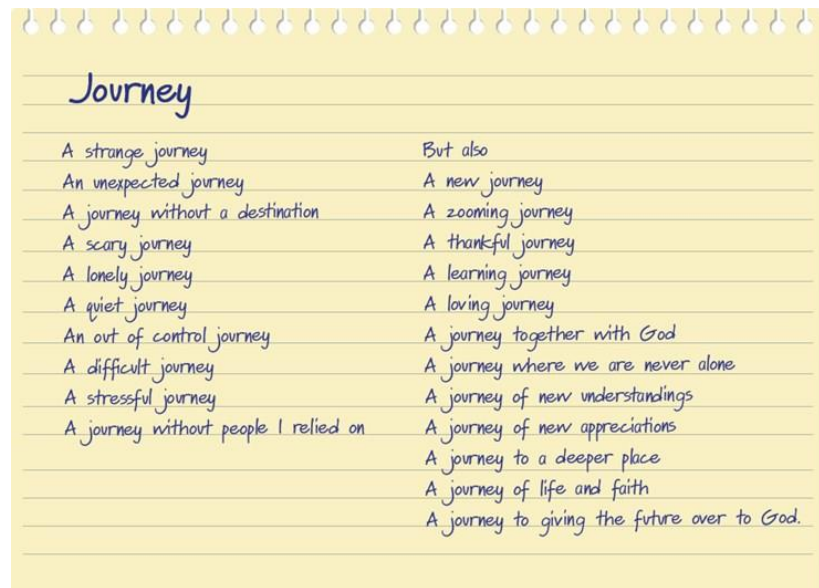 Journey
A strange journey
An unexpected journey
A journey without a destination
A scary journey
A lonely journey
A quiet journey
An out of control journey
A difficult journey
A stressful journey
A journey without people I relied on
But also
A new journey
A zooming journey
A thankful journey
A learning journey
A loving journey
A journey together with God
A journey where we are never alone
A journey of new understandings
A journey of new appreciations
A journey to a deeper place
A journey of life and faith
A journey to giving the future over to God.